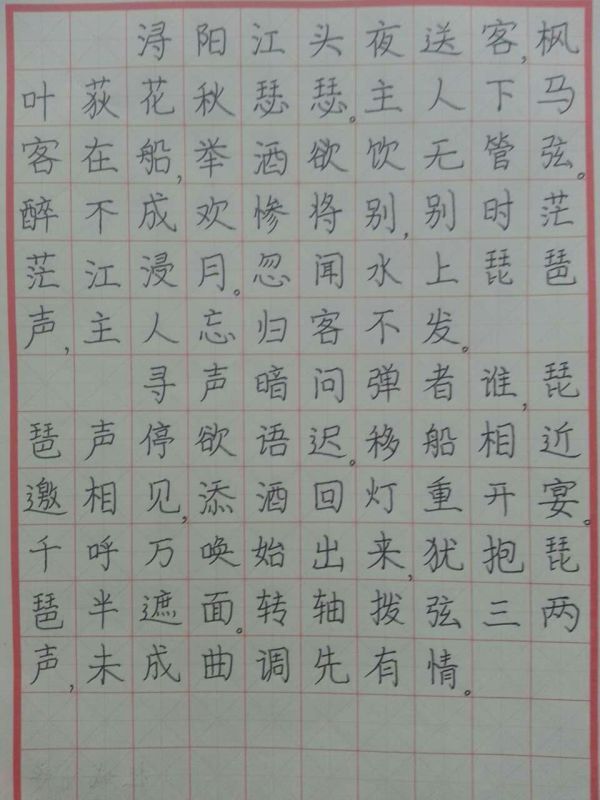 浔阳江头夜送客,枫
叶荻花秋瑟瑟。主人下马
客在船,举酒欲饮无管弦。
醉不成欢惨将别,别时茫
茫江浸月。忽闻水上琵琶
声,主人忘归客不发。
寻声暗问弹者谁,琵
琶声停欲语迟。移船相近
邀相见,添酒回灯重开宴。
千呼万唤始出来,犹抱琵
琶半遮面。转轴拨弦三两
声,未成曲调先有情。